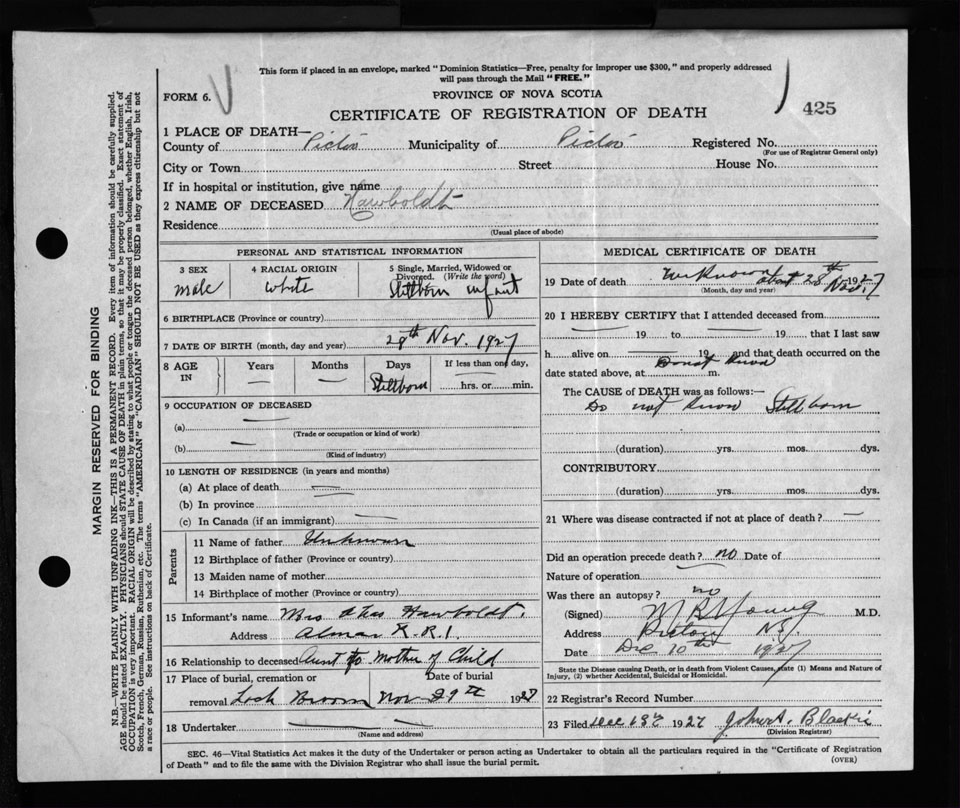 This form if placed in an envelope, marked "Dominion Statistics—Free, penalty for improper use $300," and properly addressed
will pass through the Mail "FREE."
FORM 6.
PROVINCE OF NOVA SCOTIA
CERTIFICATE OF REGISTRATION OF DEATH
425
1 PLACE OF DEATH—
County of Pictou Municipality of Pictou Registered No.
(For use of Registrar General only)
City or Town Street House No.
If in hospital or institution, give name
2 NAME OF DECEASED Hawboldt
Residence
(Usual place of abode)
PERSONAL AND STATISTICAL INFORMATION
3 SEX
male
4 RACIAL ORIGIN
White
5 Single, Married, Widowed or
Divorced. (Write the word)
Stillborn infant
6 BIRTHPLACE (Province or country)
7 DATE OF BIRTH (month, day and year) 28th Nov. 1927
8 AGE IN
Years
—
Months
—
Days
Stillborn
If less than one day,
hrs. or min.
9 OCCUPATION OF DECEASED
(a) —
(Trade or occupation or kind of work)
(b) —
(Kind of industry)
10 LENGTH OF RESIDENCE (in years and months)
(a) At place of death —
(b) In province
(c) In Canada (if an immigrant) —
Parents
11 Name of father Unknown
12 Birthplace of father (Province or country)
13 Maiden name of mother
14 Birthplace of mother (Province or country)
15 Informant's name Mrs Chas Hawboldt.
Address Alma R.R.1.
16 Relationship to deceased Aunt to Mother of Child
17 Place of burial, cremation or Date of burial
removal Loch Broom Nov 29th 1927
18 Undertaker —
(Name and address)
MEDICAL CERTIFICATE OF DEATH
19 Date of death Unknown about 28th Nov. 1927
(Month, day and year)
20 I HEREBY CERTIFY that I attended deceased from
— 19 to — 19 that I last saw
h alive on — 19 and that death occurred on the
date stated above, at Do not know m.
The CAUSE of DEATH was as follows:—
Do not know Stillborn
(duration) yrs. mos. dys.
CONTRIBUTORY
(duration) yrs. mos. dys.
21 Where was disease contracted if not at place of death? —
Did an operation precede death? no Date of
Nature of operation —
Was there an autopsy? no
(Signed) M R Young M.D.
Address Pictou NS.
Date Dec 10th 1927
State the Disease causing Death, or in death from Violent Causes, state (1) Means and Nature of
Injury, (2) whether Accidental, Suicidal or Homicidal.
22 Registrar's Record Number
23 Filed Dec 1927 John A. Blackie
(Division Registrar)
SEC. 46—Vital Statistics Act makes it the duty of the Undertaker or person acting as Undertaker to obtain all the particulars required in the "Certificate of Registration
of Death" and to file the same with the Division Registrar who shall issue the burial permit.
(OVER)
MARGIN RESERVED FOR BINDING
N.B.—WRITE PLAINLY WITH UNFADING INK—THIS IS A PERMANENT RECORD. Every item of information should be carefully supplied.
AGE should be stated EXACTLY. PHYSICIANS should STATE CAUSE OF DEATH in plain terms, so that it may be properly classified. Exact statement of
OCCUPATION is very important. RACIAL ORIGIN will be described by stating to what people or tongue the deceased person belonged, whether English, Irish,
Scotch, French, German, Russian, Ruthenian, etc. The terms "AMERICAN" or "CANADIAN" SHOULD NOT BE USED as they express citizenship but not
a race or people. See instructions on back of Certificate.